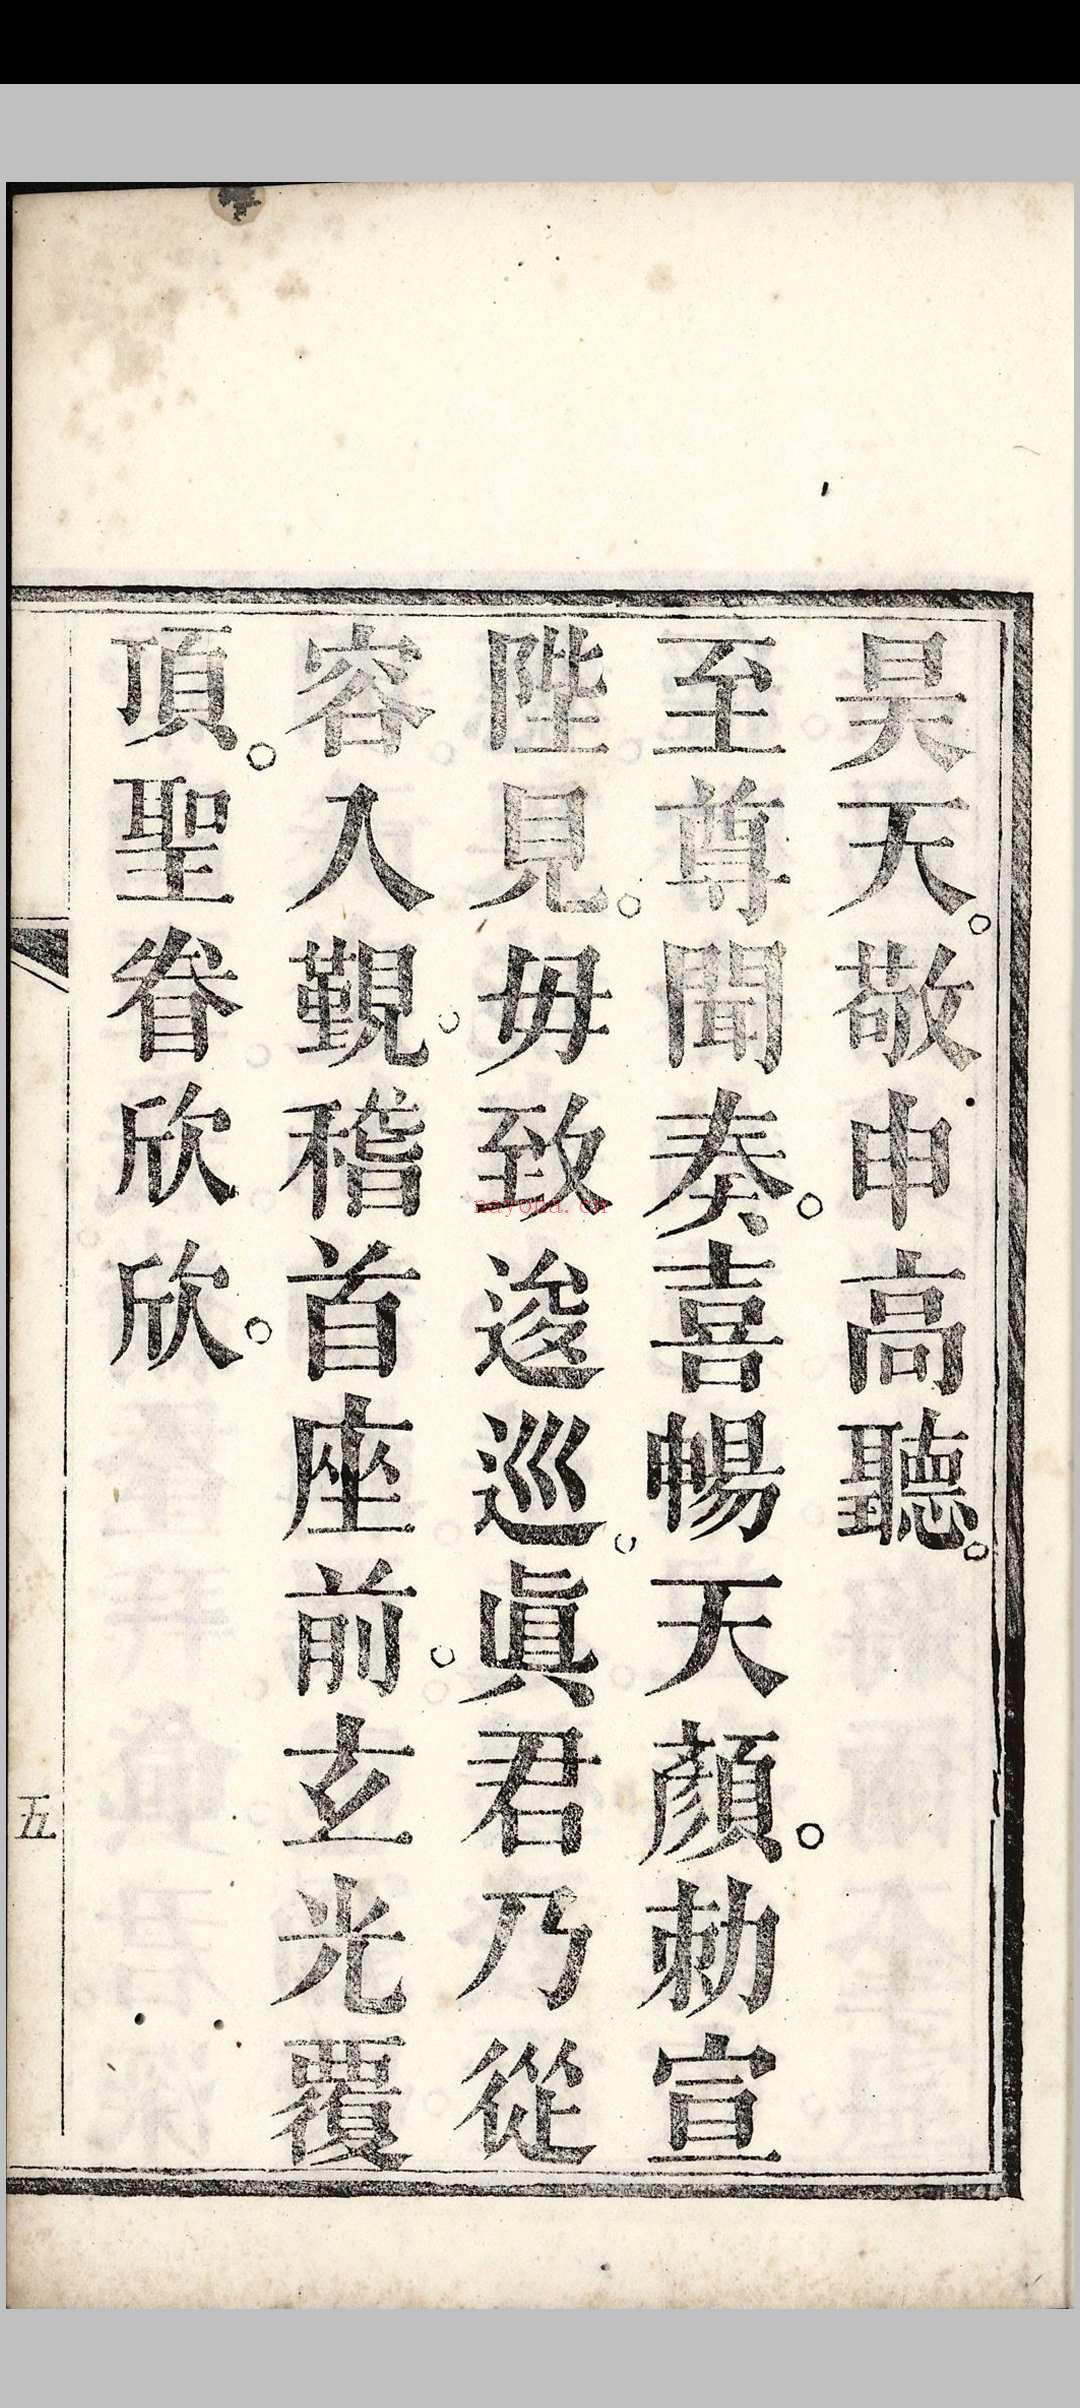 昊天。敬申高聽。
至尊聞奏。喜暢天顏。勅宣
陛見。毋致逡巡。眞君乃從
容入覲。稽首座前。玄光覆
頂。聖眷欣欣。
五
nayona.cn